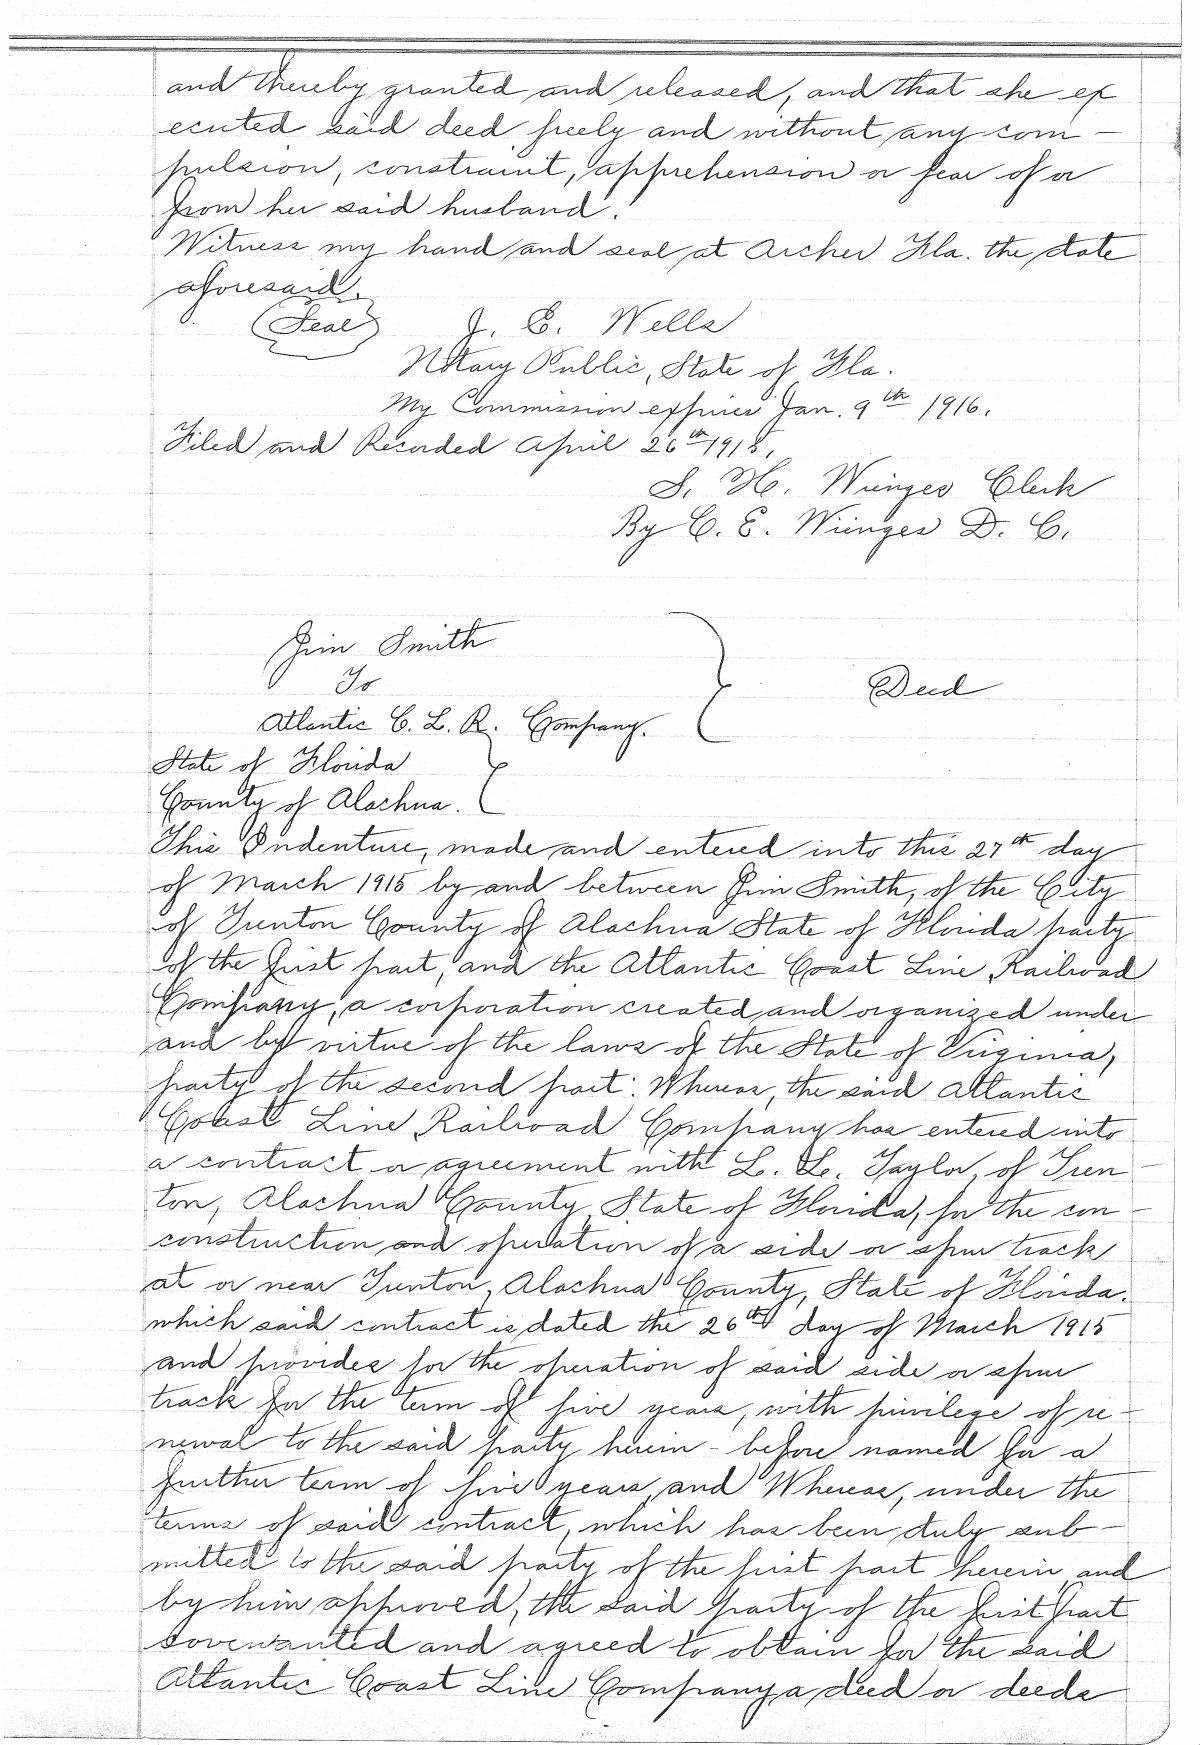 and thereby granted and released, and that she ex
ecuted said deed freely and without any com-
pulsion, constraint, apprehension or fear of or
from her said husband.
Witness my hand and seal at Archer Fla. the date
aforesaid.
(Seal) J. E. Wells
Notary Public, State of Fla.
My Commission expires Jan. 9th 1916.
Filed and Recorded April 26th 1915.
S. H. Wienges Clerk
By C. E. Wienges D. C.
Jim Smith
To
Deed
Atlantic C. L. R. Company.
State of Florida
County of Alachua.
This Indenture, made and entered into this 27th day
of March 1915 by and between Jim Smith, of the City
of Trenton County of Alachua State of Florida party
of the first part, and the Atlantic Coast Line Railroad
Company, a corporation created and organized under
and by virtue of the laws of the State of Virginia,
party of the second part: Whereas, the said Atlantic
Coast Line Railroad Company has entered into
a contract or agreement with L. L. Taylor, of Tren-
ton, Alachua County, State of Florida, for the con-
construction and operation of a side or spur track
at or near Trenton, Alachua County, State of Florida.
which said contract is dated the 26th day of March 1915
and provides for the operation of said side or spur
track for the term of five years, with privilege of re-
newal to the said party herein-before named for a
further term of five years, and Whereas, under the
terms of said contract, which has been duly sub-
mitted to the said party of the first part herein, and
by him approved, the said party of the first part
covewanted and agreed to obtain for the said
Atlantic Coast Line Company a deed or deeds